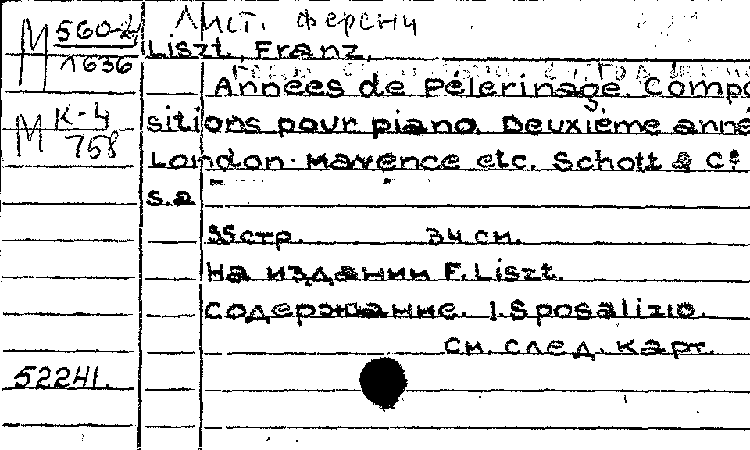 Лист. Ференц
М 560-2/1636
Liszt, Franz,
Années de Pélerinage. Compo
М К-4/758
sitions pour piano. Deuxiéme anne
London. Mayence etc. Schott & Cº
s.a
55 стр. 34 см.
На издании F. Liszt.
Содержание. 1. Sposalizio.
см. след. карт.
52241.